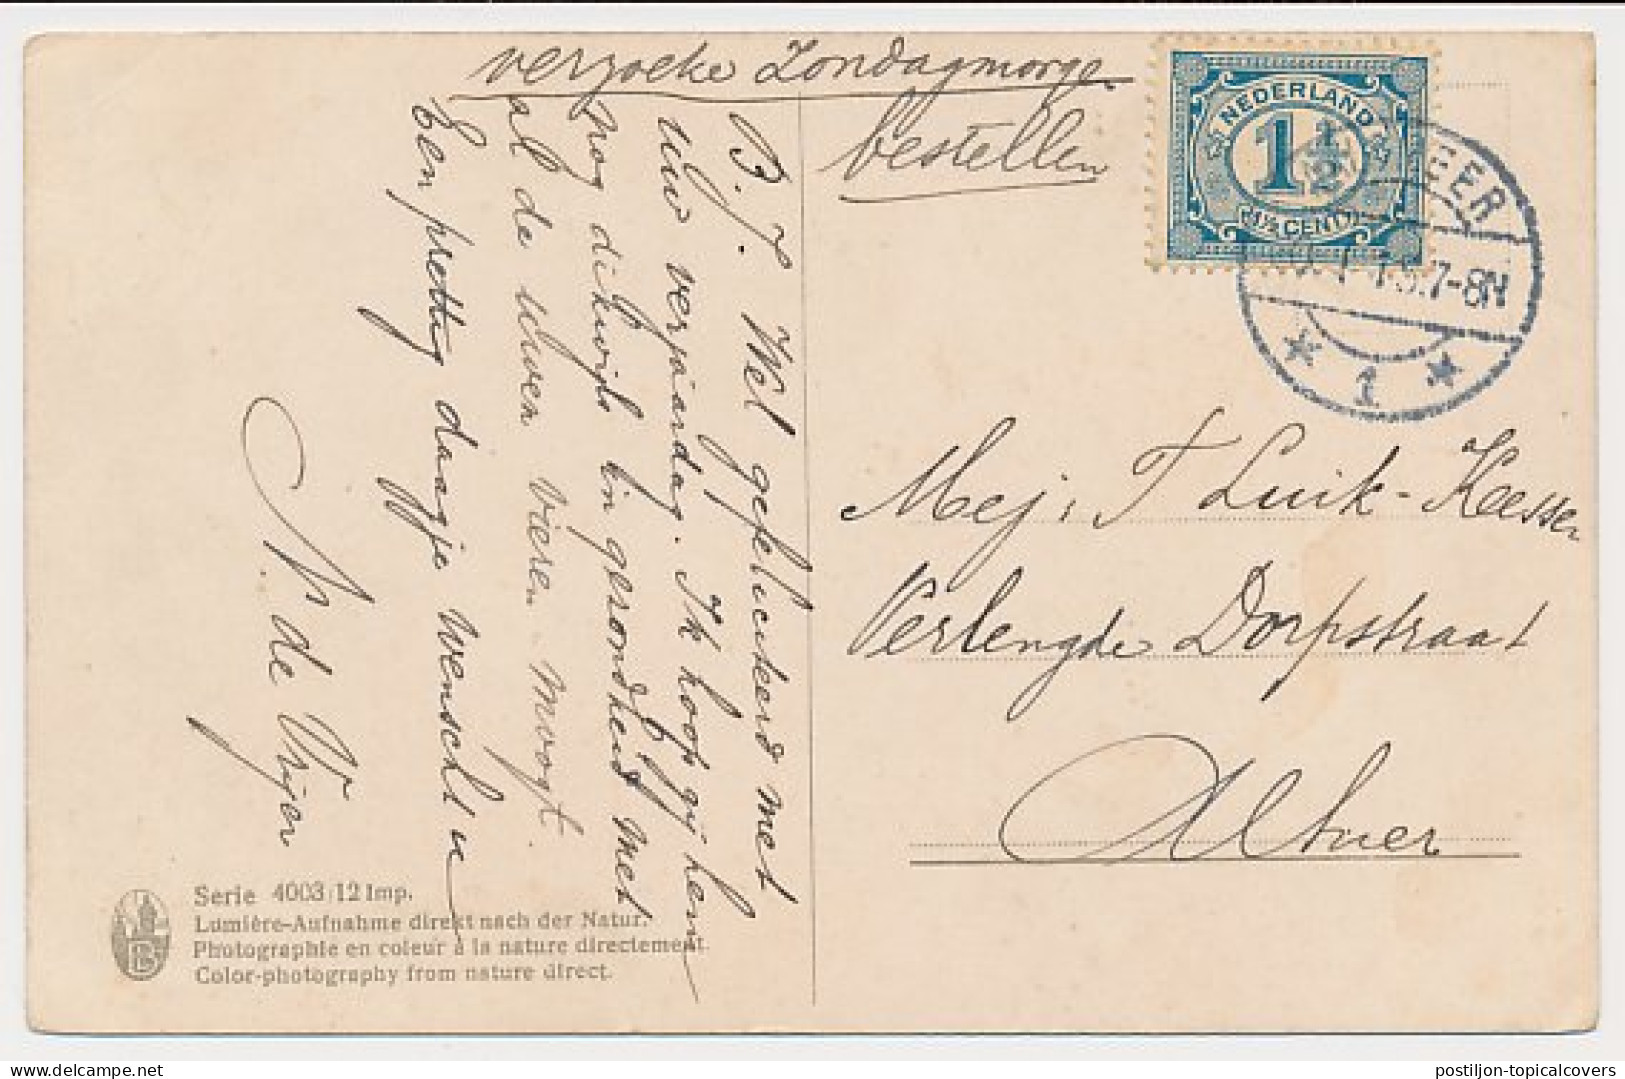 verzoeke Zondagmorge
bestellen
NEDERLAND
1½
1½ CENT
EER
7-8N
1
B. J. Wel gefeliciteerd met
Uw verjaardag. Ik hoop gij hem
nog dikwijls in gezondheid met
al de uwen vieren moogt.
Een prettig daagje wensch u
N. de Vrijer
Mej. F Luik-Kessen
Verlengde Dorpstraat
Serie 4003/12 Imp.
Lumière-Aufnahme direkt nach der Natur.
Photographie en coleur à la nature directement.
Color-photography from nature direct.
delcampe.net
postiljon-topicalcovers